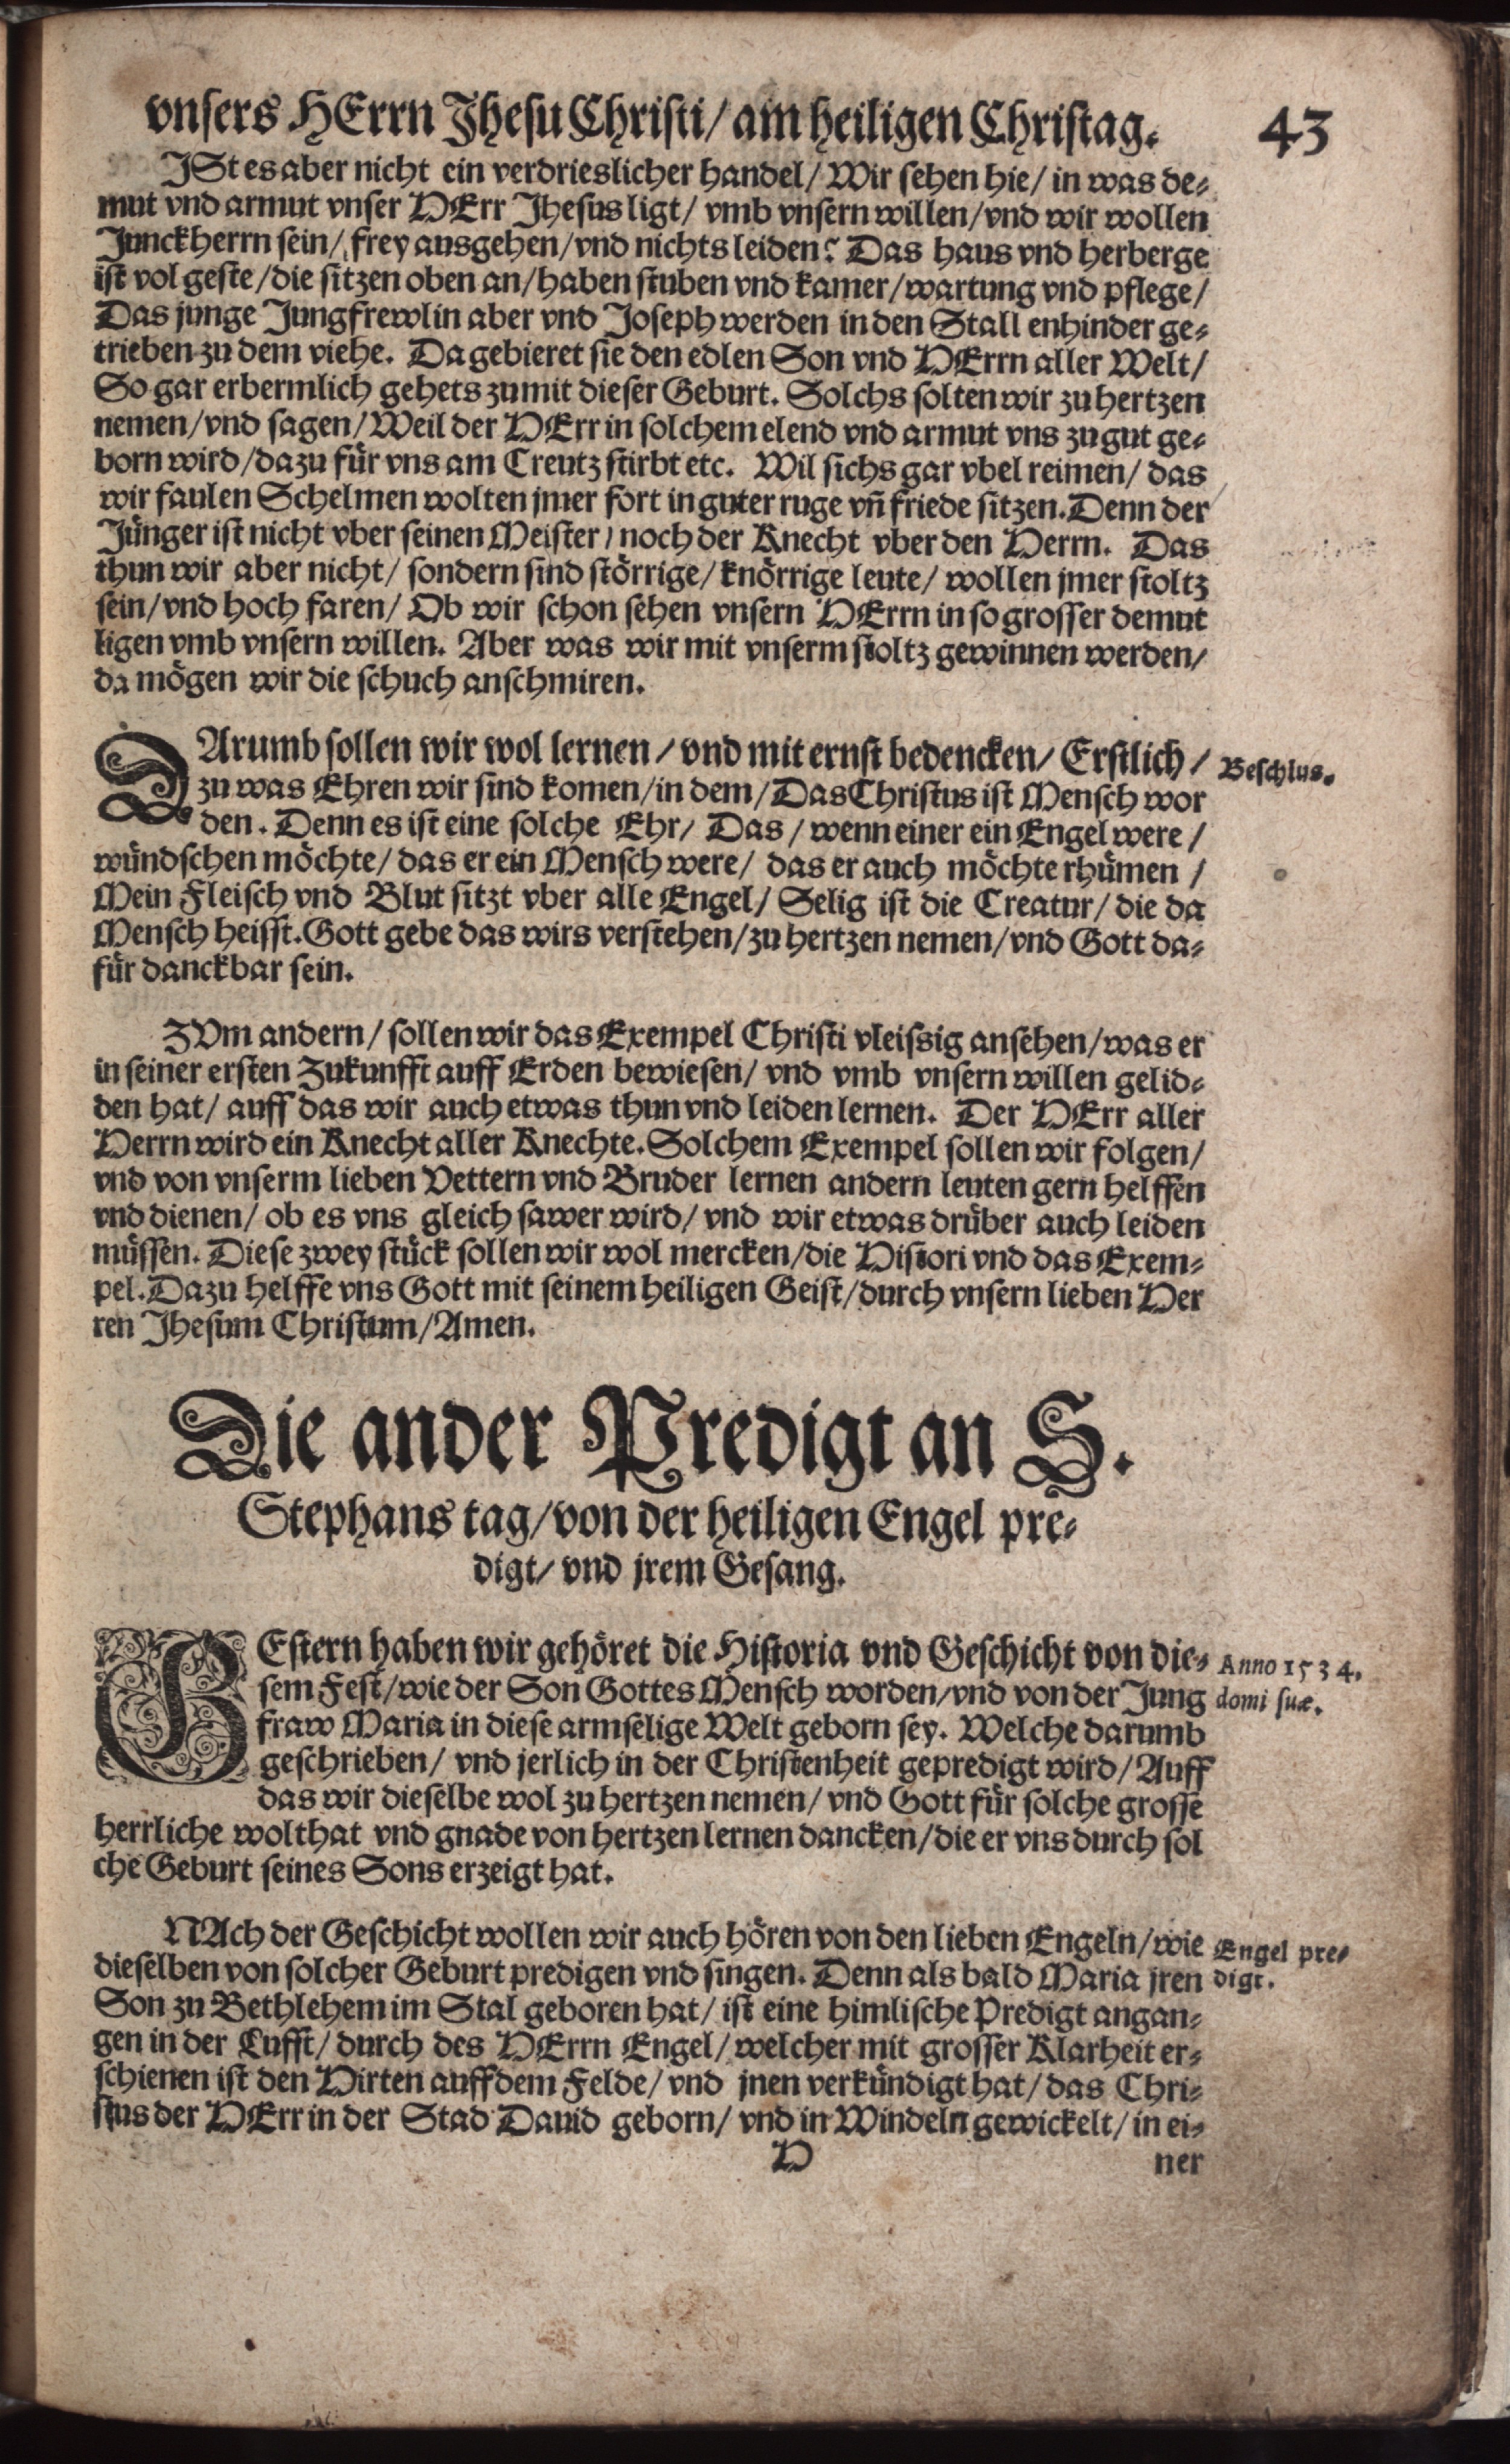 vnsers HErrn Jhesu Christi/ am heiligen Christag. 43
JSt es aber nicht ein verdrieslicher handel/ Wir sehen hie/ in was de⸗
mut vnd armut vnser HErr Jhesus ligt/ vmb vnsern willen/ vnd wir wollen
Junckherrn sein/ frey ausgehen/ vnd nichts leiden? Das haus vnd herberge
ist vol geste/ die sitzen oben an/ haben stuben vnd kamer/ wartung vnd pflege/
Das junge Jungfrewlin aber vnd Joseph werden in den Stall enhinder ge⸗
trieben zu dem viehe. Da gebieret sie den edlen Son vnd HErrn aller Welt/
So gar erbermlich gehets zu mit dieser Geburt. Solchs solten wir zu hertzen
nemen/ vnd sagen/ Weil der HErr in solchem elend vnd armut vns zu gut ge⸗
born wird/ dazu für vns am Creutz stirbt etc. Wil sichs gar vbel reimen/ das
wir faulen Schelmen wolten jmer fort in guter ruge vñ friede sitzen. Denn der
Jünger ist nicht vber seinen Meister/ noch der Knecht vber den Herrn. Das
thun wir aber nicht/ sondern sind störrige/ knörrige leute/ wollen jmer stoltz
sein/ vnd hoch faren/ Ob wir schon sehen vnsern HErrn in so grosser demut
ligen vmb vnsern willen. Aber was wir mit vnserm stoltz gewinnen werden/
da mögen wir die schuch anschmiren.
DArumb sollen wir wol lernen/ vnd mit ernst bedencken/ Erstlich/ Beschlus.
zu was Ehren wir sind komen/ in dem/ Das Christus ist Mensch wor
den. Denn es ist eine solche Ehr/ Das/ wenn einer ein Engel were/
wündschen möchte/ das er ein Mensch were/ das er auch möchte rhümen/
Mein Fleisch vnd Blut sitzt vber alle Engel/ Selig ist die Creatur/ die da
Mensch heisst. Gott gebe das wirs verstehen/ zu hertzen nemen/ vnd Gott da⸗
für danckbar sein.
ZVm andern/ sollen wir das Exempel Christi vleissig ansehen/ was er
in seiner ersten Zukunfft auff Erden bewiesen/ vnd vmb vnsern willen gelid⸗
den hat/ auff das wir auch etwas thun vnd leiden lernen. Der HErr aller
Herrn wird ein Knecht aller Knechte. Solchem Exempel sollen wir folgen/
vnd von vnserm lieben Vettern vnd Bruder lernen andern leuten gern helffen
vnd dienen/ ob es vns gleich sawer wird/ vnd wir etwas drüber auch leiden
müssen. Diese zwey stück sollen wir wol mercken/ die Histori vnd das Exem⸗
pel. Dazu helffe vns Gott mit seinem heiligen Geist/ durch vnsern lieben Her
ren Jhesum Christum/ Amen.
Die ander Predigt an S.
Stephans tag/ von der heiligen Engel pre⸗
digt/ vnd jrem Gesang.
GEstern haben wir gehöret die Historia vnd Geschicht von die⸗ Anno 1534.
sem Fest/ wie der Son Gottes Mensch worden/ vnd von der Jung domi suæ.
fraw Maria in diese armselige Welt geborn sey. Welche darumb
geschrieben/ vnd jerlich in der Christenheit gepredigt wird/ Auff
das wir dieselbe wol zu hertzen nemen/ vnd Gott für solche grosse
herrliche wolthat vnd gnade von hertzen lernen dancken/ die er vns durch sol
che Geburt seines Sons erzeigt hat.
NAch der Geschicht wollen wir auch hören von den lieben Engeln/ wie Engel pre⸗
dieselben von solcher Geburt predigen vnd singen. Denn als bald Maria jren digt.
Son zu Bethlehem im Stal geboren hat/ ist eine himlische Predigt angan⸗
gen in der Lufft/ durch des HErrn Engel/ welcher mit grosser Klarheit er⸗
schienen ist den Hirten auff dem Felde/ vnd jnen verkündigt hat/ das Chri⸗
stus der HErr in der Stad Dauid geborn/ vnd in Windeln gewickelt/ in ei⸗
H ner